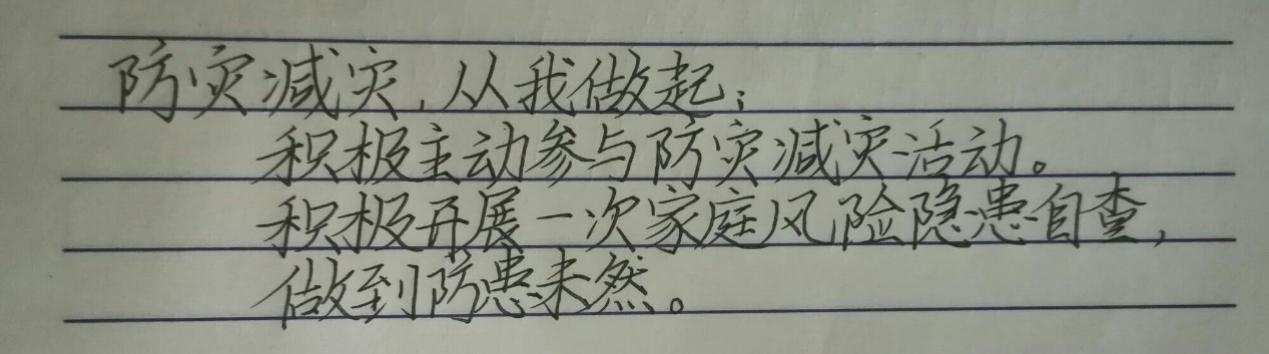 防灾减灾，从我做起；
积极主动参与防灾减灾活动。
积极开展一次家庭风险隐患自查，
做到防患未然。